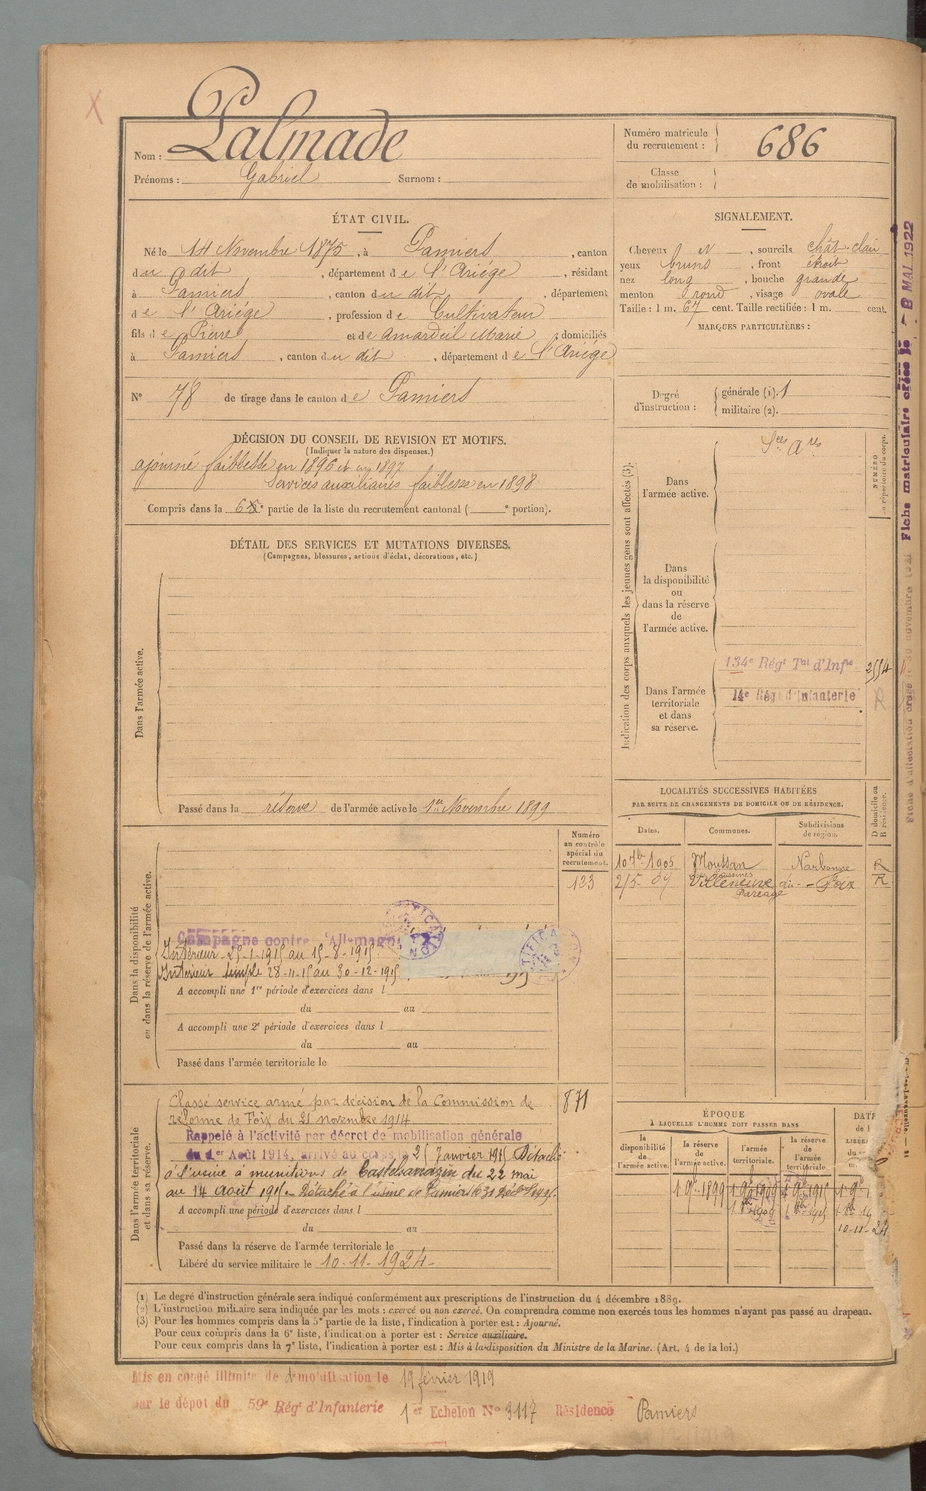 Nom : Palmade
Prénoms : Gabriel Surnom :
Numéro matricule du recrutement : 686
Classe de mobilisation :
ÉTAT CIVIL.
Né le 14 Novembre 1875, à Pamiers, canton
du dit, département de l'Ariège, résidant
à Pamiers, canton du dit, département
de l'Ariège, profession de Cultivateur
fils de Pierre et de Amardeil Marie, domiciliés
à Pamiers, canton du dit, département de l'Ariège
N° 78 de tirage dans le canton de Pamiers
SIGNALEMENT.
Cheveux N, sourcils chât-clair
yeux bruns, front étroit
nez long, bouche grande
menton rond, visage ovale
Taille : 1 m. 67 cent. Taille rectifiée : 1 m. cent.
MARQUES PARTICULIÈRES :
Degré d'instruction : générale (1). 1
militaire (2).
DÉCISION DU CONSEIL DE REVISION ET MOTIFS.
(Indiquer la nature des dispenses.)
ajourné faiblesse en 1896 et en 1897
Services auxiliaires faiblesse en 1898
Compris dans la 6e partie de la liste du recrutement cantonal ( e portion).
DÉTAIL DES SERVICES ET MUTATIONS DIVERSES.
(Campagnes, blessures, actions d'éclat, décorations, etc.)
Dans l'armée active.
Passé dans la réserve de l'armée active le 1er Novembre 1899
Indication des corps auxquels les jeunes gens sont affectés (3).
NUMÉRO au répertoire du corps.
Dans l'armée active.
Dans la disponibilité ou dans la réserve de l'armée active.
Dans l'armée territoriale et dans sa réserve.
134e Régt Tal d'Infie
14e Régt d'Infanterie
R
LOCALITÉS SUCCESSIVES HABITÉES
PAR SUITE DE CHANGEMENTS DE DOMICILE OU DE RÉSIDENCE.
Dates. Communes. Subdivisions de région. D domicile ou R résidence.
1905 Moussan Narbonne R
Villeneuve du Paréage Foix R
Dans la disponibilité ou dans la réserve de l'armée active.
Numéro au contrôle spécial du recrutement.
123
Campagne contre l'Allemagne
Intérieur 25-1-1915 au 15-8-1915
Intérieur simple 28-11-15 au 30-12-1915
A accompli une 1re période d'exercices dans l
du au
A accompli une 2e période d'exercices dans l
du au
Passé dans l'armée territoriale le
Dans l'armée territoriale et dans sa réserve.
871
Classé service armé par décision de la Commission de
réforme de Foix du 21 novembre 1914
Rappelé à l'activité par décret de mobilisation générale
du 1er Août 1914, arrivé au corps le 25 Janvier 1915 Détaché
à l'usine à munitions de Castelsarrazin du 22 mai
au 14 août 1915. Détaché à l'usine de Pamiers
A accompli une période d'exercices dans l
du au
Passé dans la réserve de l'armée territoriale le
Libéré du service militaire le 10-11-1924-
ÉPOQUE
À LAQUELLE L'HOMME DOIT PASSER DANS
la disponibilité de l'armée active. la réserve de l'armée active. l'armée territoriale. la réserve de l'armée territoriale.
1899
10-11-24
(1) Le degré d'instruction générale sera indiqué conformément aux prescriptions de l'instruction du 4 décembre 1889.
(2) L'instruction militaire sera indiquée par les mots : exercé ou non exercé. On comprendra comme non exercés tous les hommes n'ayant pas passé au drapeau.
(3) Pour les hommes compris dans la 5e partie de la liste, l'indication à porter est : Ajourné.
Pour ceux compris dans la 6e liste, l'indication à porter est : Service auxiliaire.
Pour ceux compris dans la 7e liste, l'indication à porter est : Mis à la disposition du Ministre de la Marine. (Art. 4 de la loi.)
Mis en congé illimité de démobilisation le 19 février 1919
par le dépôt du 59e Régt d'Infanterie 1er Echelon N° 3117 Résidence Pamiers
Fiche matriculaire créée le - 8 MAI 1922